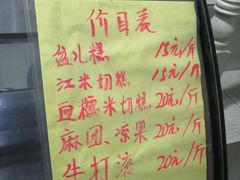 价目表
盆儿糕 15元/斤
江米切糕 15元/斤
血糯米切糕 20元/斤
麻团、凉果 20元/斤
牛打滚 20元/斤